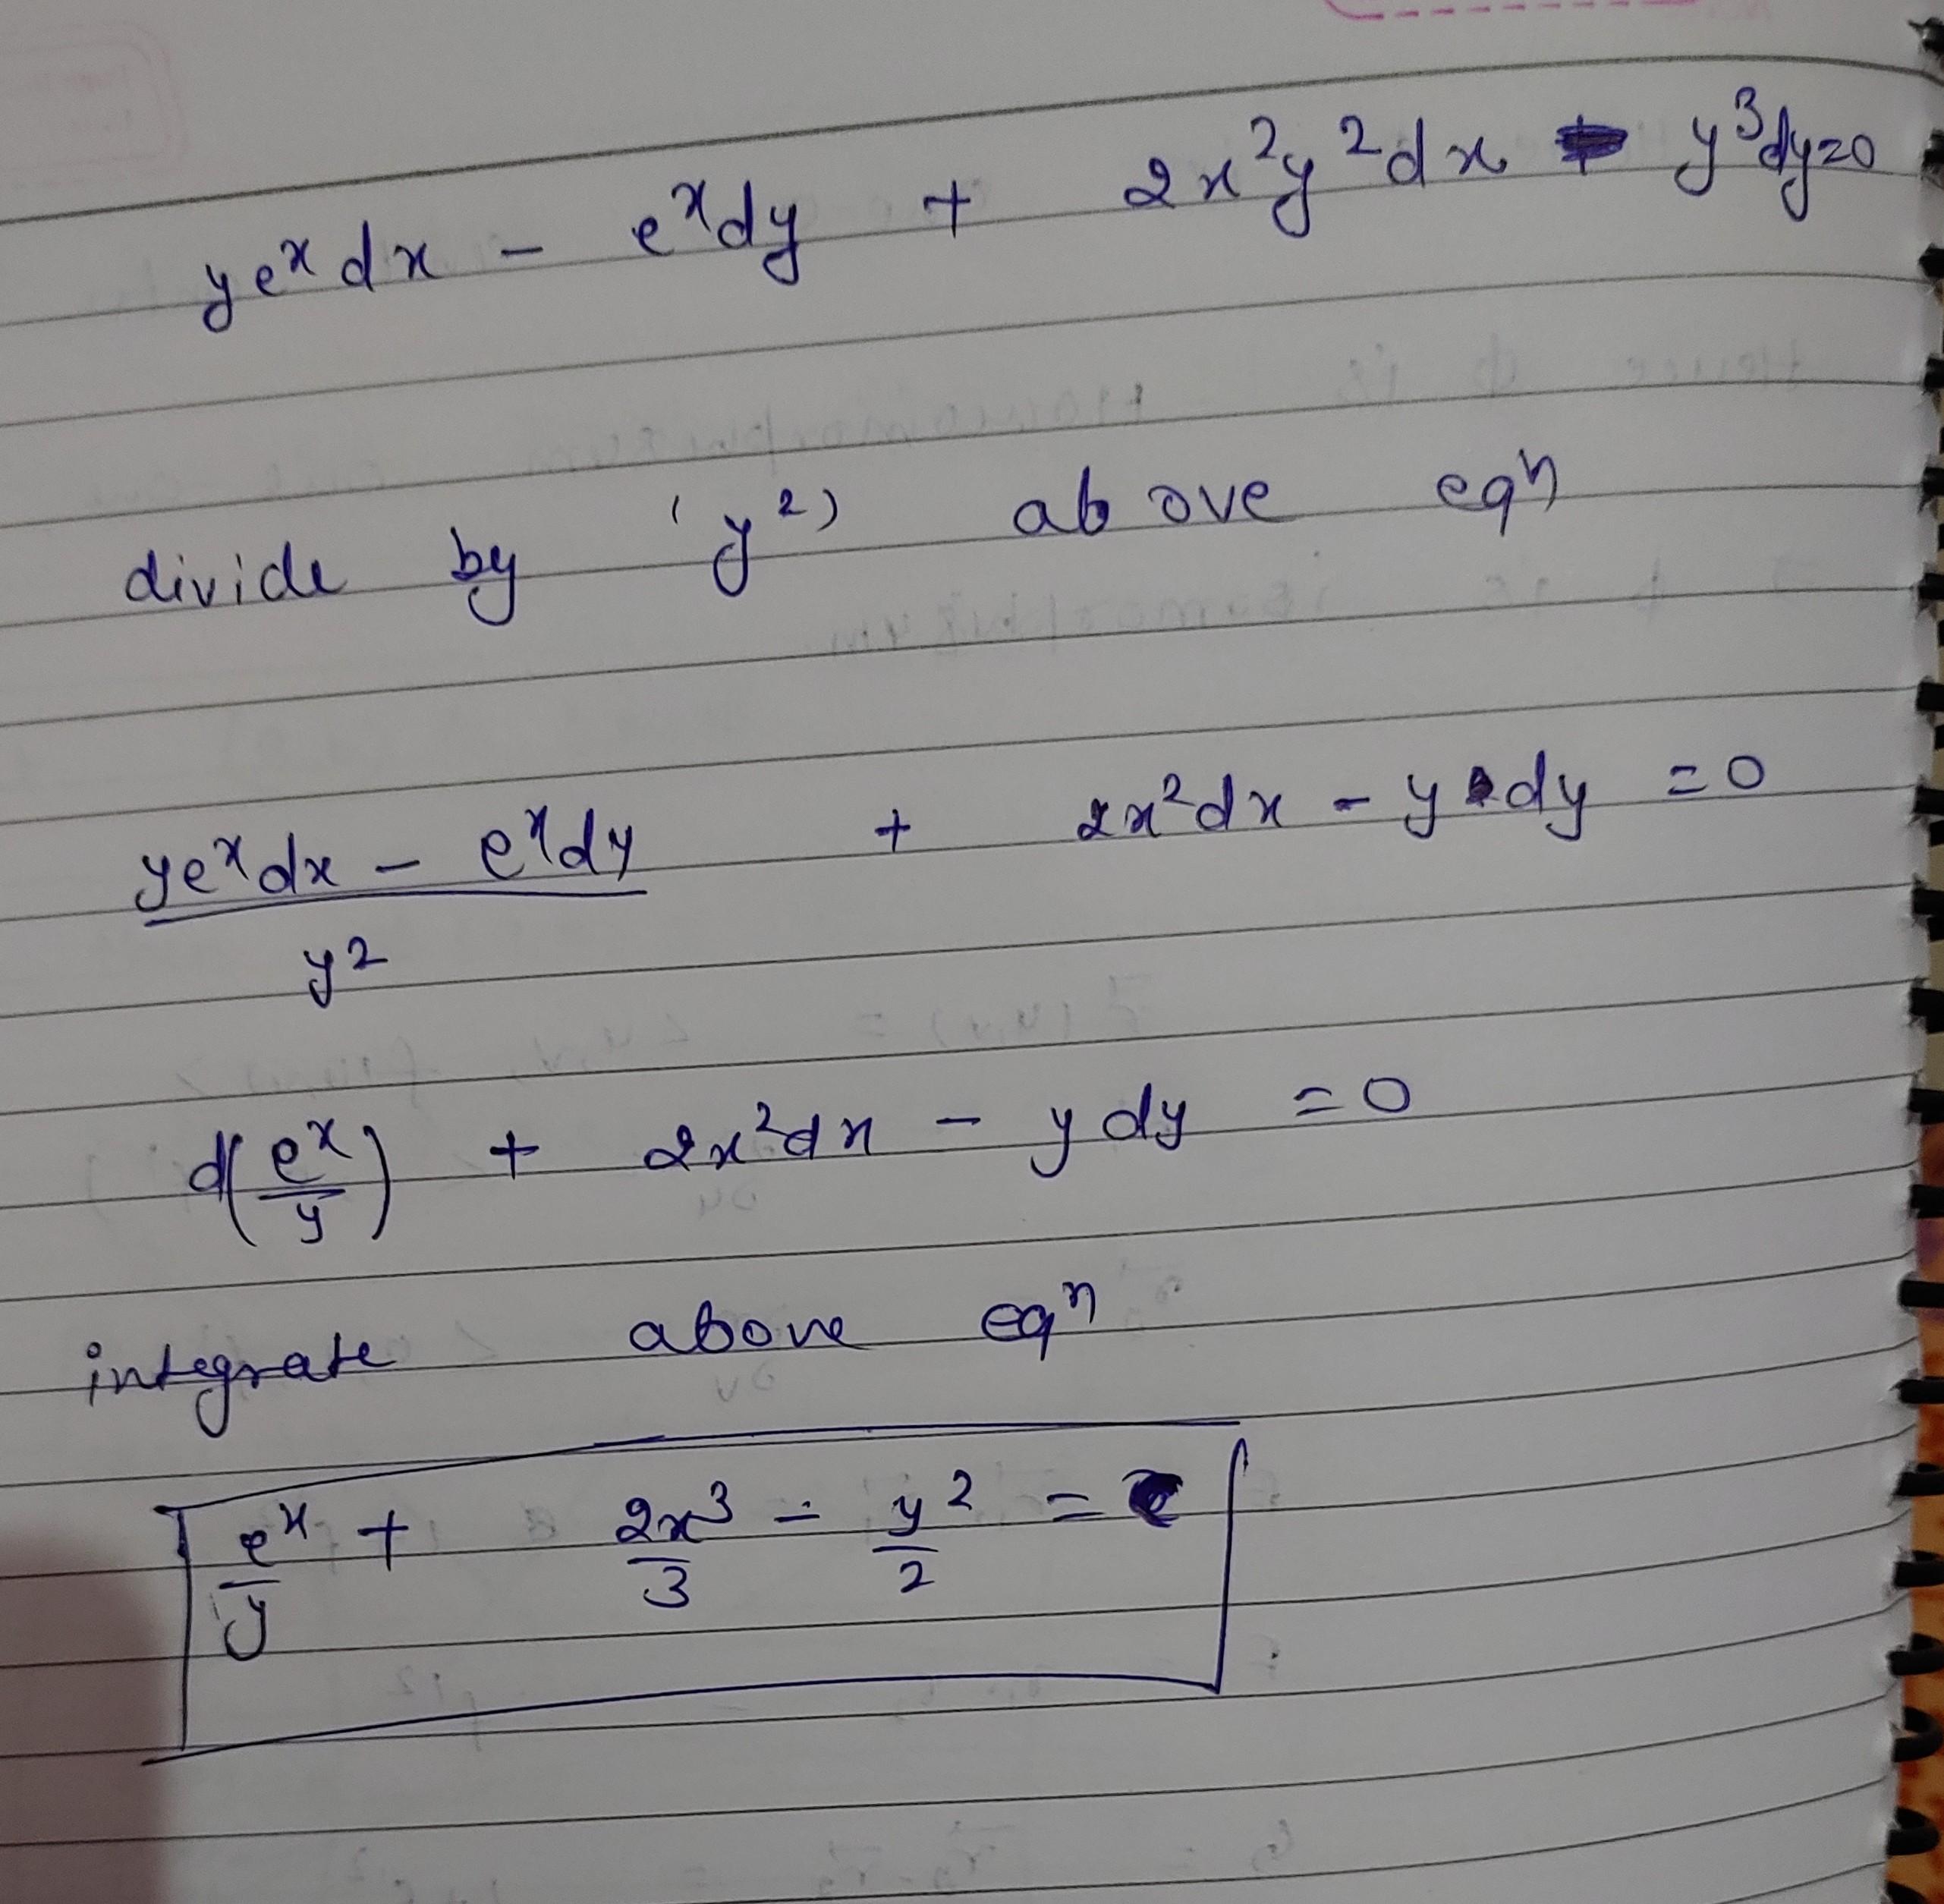 yeˣdx - eˣdy + 2x²y²dx - y³dy=0
divide by 'y²' above eqⁿ
(yeˣdx - eˣdy)/y² + 2x²dx - y dy = 0
d(eˣ/y) + 2x²dx - y dy = 0
integrate above eqⁿ
eˣ/y + 2x³/3 - y²/2 = c